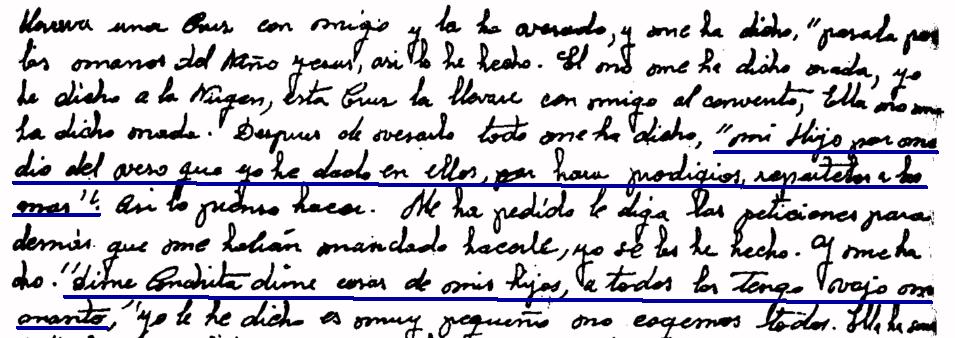 llevava una Cruz con migo y la ha vesado, y me ha dicho, "pasala por
las manos del Niño Yesus, asi lo he hecho. El no me ha dicho nada, yo
he dicho a la Virgen, esta Cruz la llevare con migo al convento, Ella no me
ha dicho nada. Despues de vesarlo todo me ha dicho, "mi Hijo por me
dio del veso que yo he dado en ellos, hara prodigios, repartelos a los
mas". Asi lo pienso hacer. Me ha pedido le diga las peticiones para
demás que me habián mandado hacerle, yo se las he hecho. Y me ha
cho. "dime Conchita dime cosas de mis hijos, a todos los tengo vajo mi
manto," yo le he dicho es muy pequeño no cogemos todos. Ella ha